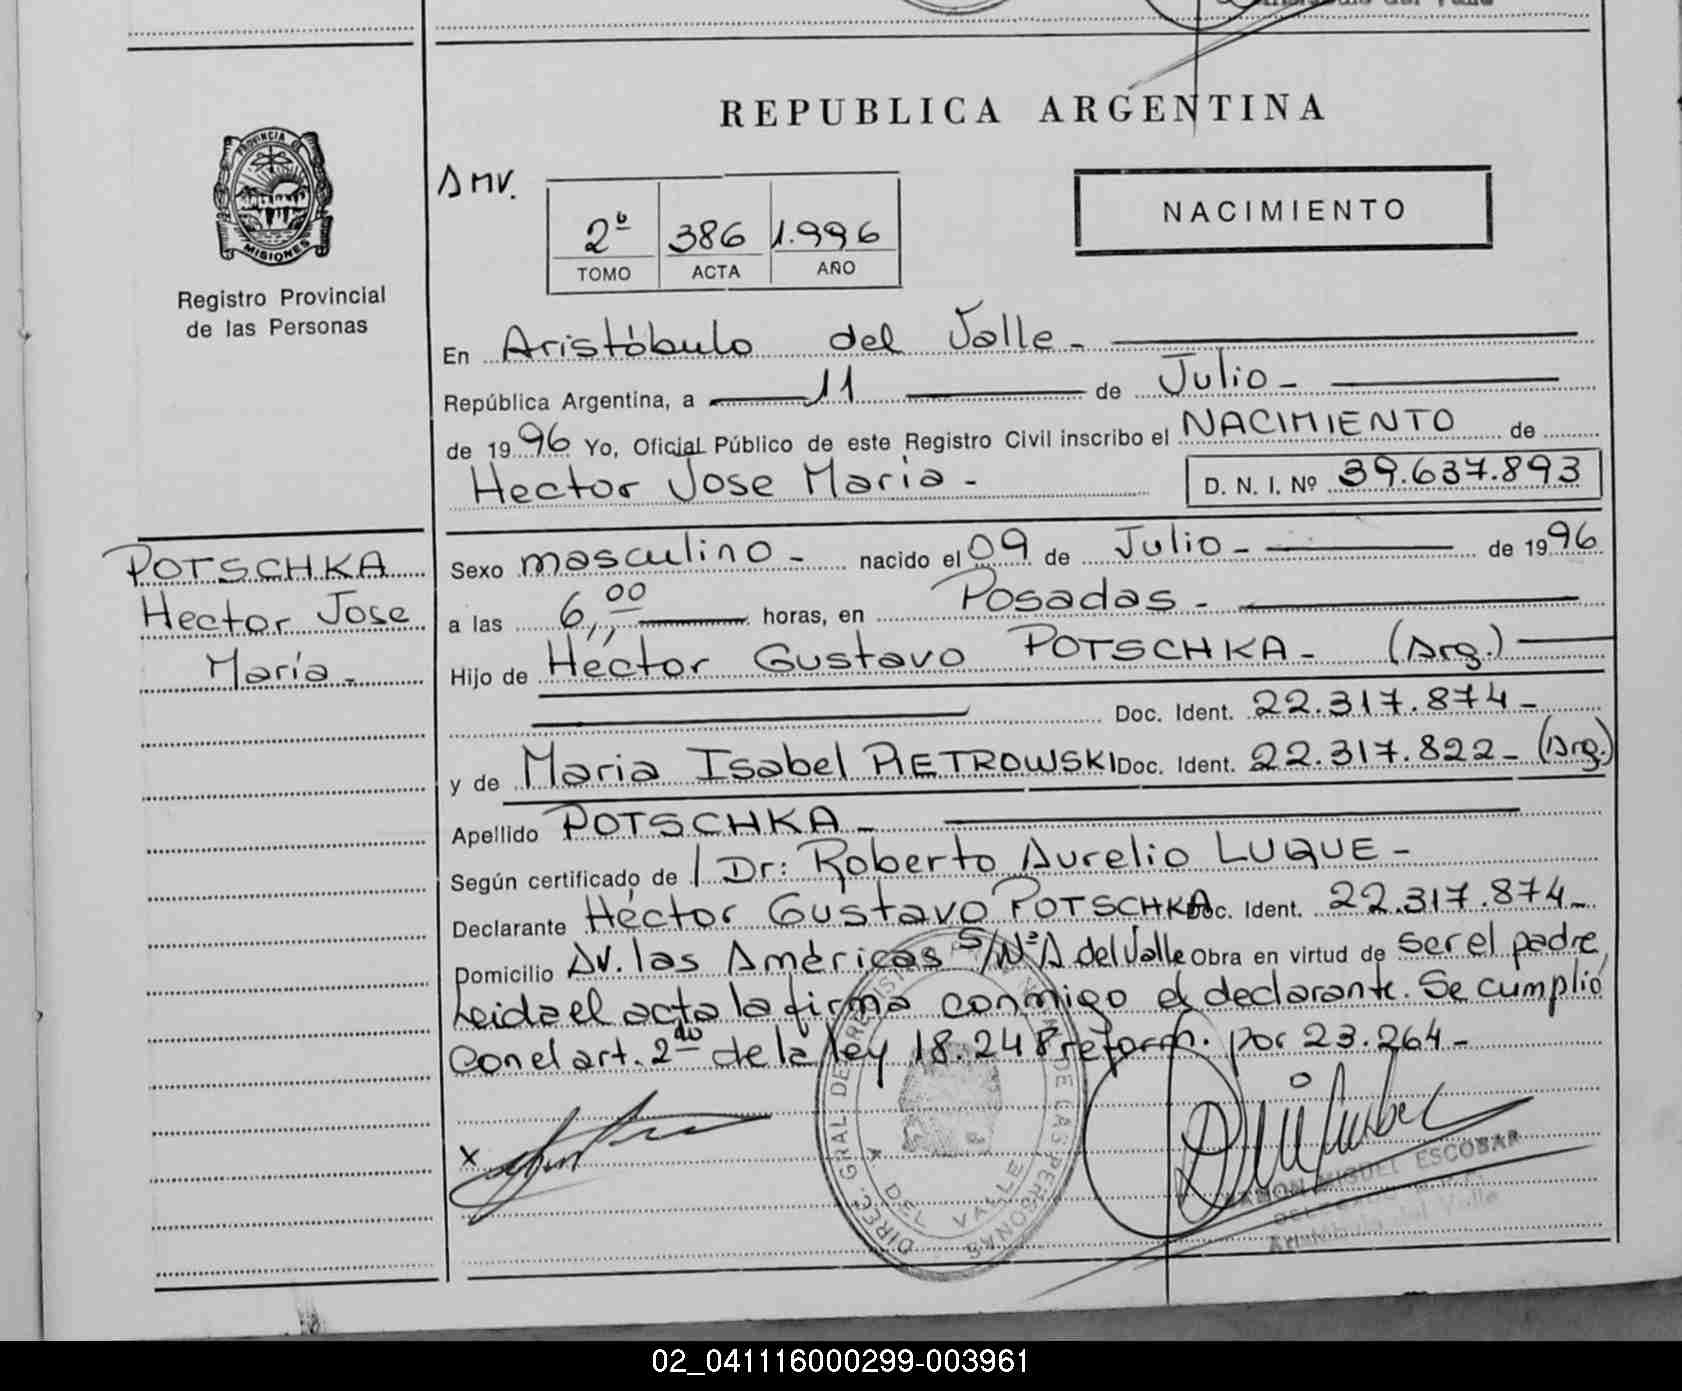 REPUBLICA ARGENTINA
PROVINCIA DE
MISIONES
Registro Provincial
de las Personas
AMV.
2º 386 1.996
TOMO ACTA AÑO
NACIMIENTO
En Aristóbulo del Valle-
República Argentina, a 11 de Julio-
de 1996 Yo, Oficial Público de este Registro Civil inscribo el NACIMIENTO de
Hector Jose Maria - D. N. I. Nº 39.637.893
POTSCHKA
Hector Jose
María-
Sexo masculino- nacido el 09 de Julio- de 1996
a las 6,,00 horas, en Posadas-
Hijo de Héctor Gustavo POTSCHKA- (Arg.)
Doc. Ident. 22.317.874-
y de Maria Isabel PIETROWSKI Doc. Ident. 22.317.822- (Arg.)
Apellido POTSCHKA-
Según certificado de / Dr: Roberto Aurelio LUQUE-
Declarante Héctor Gustavo POTSCHKA Doc. Ident. 22.317.874-
Domicilio Av. las Américas S/Nº A del Valle Obra en virtud de ser el padre,
Leida el acta la firma conmigo el declarante. Se cumplió
con el art. 2do de la ley 18.248 reform. por 23.264-
x
DIREC. GRAL DE REGISTRO DE LAS PERSONAS
A DEL VALLE
RAMON MIGUEL ESCOBAR
Aristóbulo del Valle
02_041116000299-003961